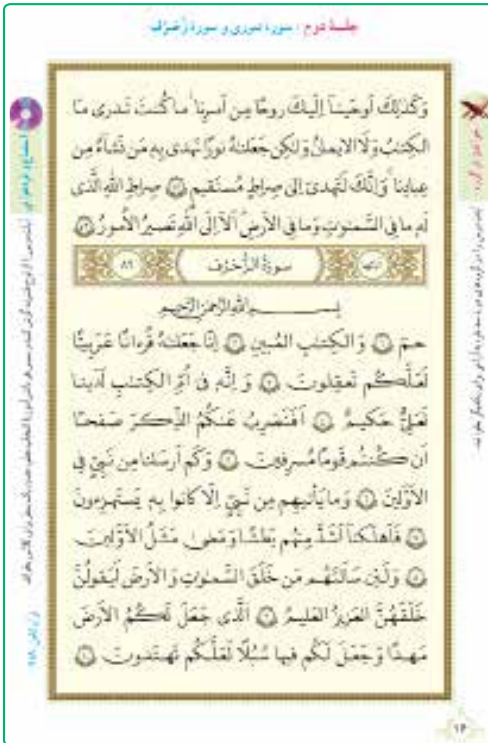 جلسهٔ دوم : سورهٔ شوری و سورهٔ زُخرُف
وَ كَذٰلِكَ اَوحَينا اِلَيكَ روحًا مِن اَمرِنا ما كُنتَ تَدرى مَا
الكِتٰبُ وَ لَا الايمانُ وَ لٰكِن جَعَلنٰهُ نورًا نَهدى بِه مَن نَشاءُ مِن
عِبادِنا وَ اِنَّكَ لَتَهدى اِلىٰ صِراطٍ مُستَقيمٍ ﴿٥٢﴾ صِراطِ اللّٰهِ الَّذى
لَه ما فِى السَّمٰوٰتِ وَ ما فِى الاَرضِ اَلا اِلَى اللّٰهِ تَصيرُ الاُمورُ ﴿٥٣﴾
سورة الزُّخرُف
٨٩
بِسمِ اللّٰهِ الرَّحمٰنِ الرَّحيمِ
حم ﴿١﴾ وَ الكِتٰبِ المُبينِ ﴿٢﴾ اِنّا جَعَلنٰهُ قُرءانًا عَرَبِيًّا
لَعَلَّكُم تَعقِلونَ ﴿٣﴾ وَ اِنَّه فى اُمِّ الكِتٰبِ لَدَينا
لَعَلِىٌّ حَكيمٌ ﴿٤﴾ اَفَنَضرِبُ عَنكُمُ الذِّكرَ صَفحًا
اَن كُنتُم قَومًا مُسرِفينَ ﴿٥﴾ وَ كَم اَرسَلنا مِن نَبِىٍّ فِى
الاَوَّلينَ ﴿٦﴾ وَ ما يَأتيهِم مِن نَبِىٍّ اِلّا كانوا بِه يَستَهزِءونَ
﴿٧﴾ فَاَهلَكنا اَشَدَّ مِنهُم بَطشًا وَ مَضىٰ مَثَلُ الاَوَّلينَ
﴿٨﴾ وَ لَئِن سَاَلتَهُم مَن خَلَقَ السَّمٰوٰتِ وَ الاَرضَ لَيَقولُنَّ
خَلَقَهُنَّ العَزيزُ العَليمُ ﴿٩﴾ اَلَّذى جَعَلَ لَكُمُ الاَرضَ
مَهدًا وَ جَعَلَ لَكُم فيها سُبُلًا لَعَلَّكُم تَهتَدونَ ﴿١٠﴾
١٤